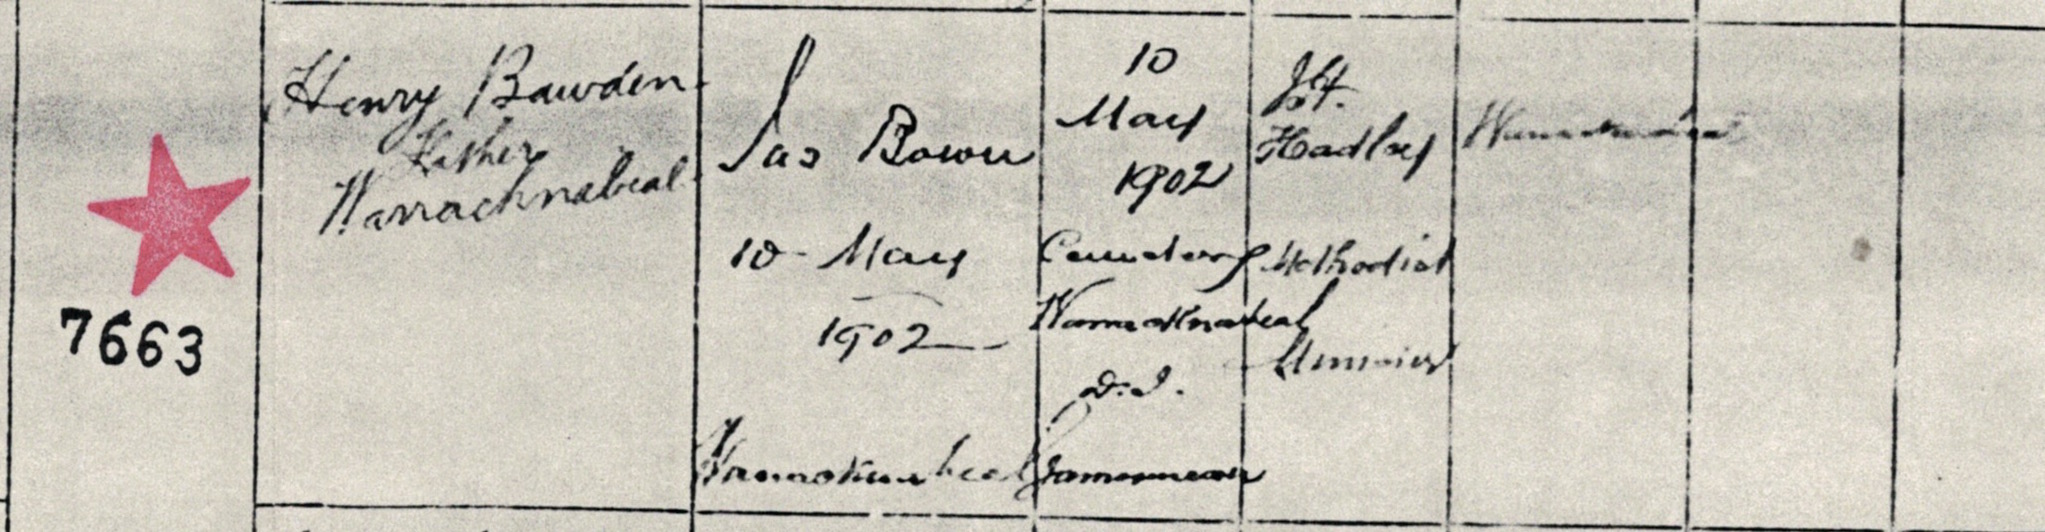 7663
Henry Bawden
Father
Warracknabeal
Jas Bown
10 May
1902
Warracknabeal
10
May
1902
Cemetery
Warracknabeal
Hadley
Methodist
Minister